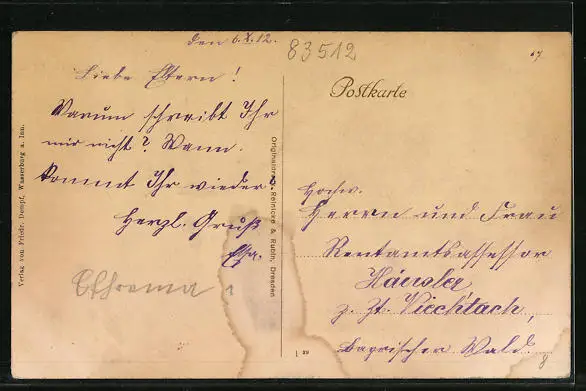 den 6.X.12.
Liebe Eltern!
Warum schreibt Ihr
mir nicht? Wann
kommt Ihr wieder?
Herzl. Gruß
Elsa.
83512
Postkarte
Hochw.
Herrn und Frau
Rentamtsassessor
z. Zt. Viechtach,
Bayrischer Wald.
8
Verlag von Friedr. Dempf, Wasserburg a. Inn.
Originaldruck Reinicke & Rubin, Dresden